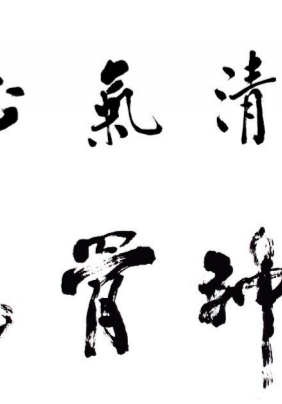 清氣
神骨